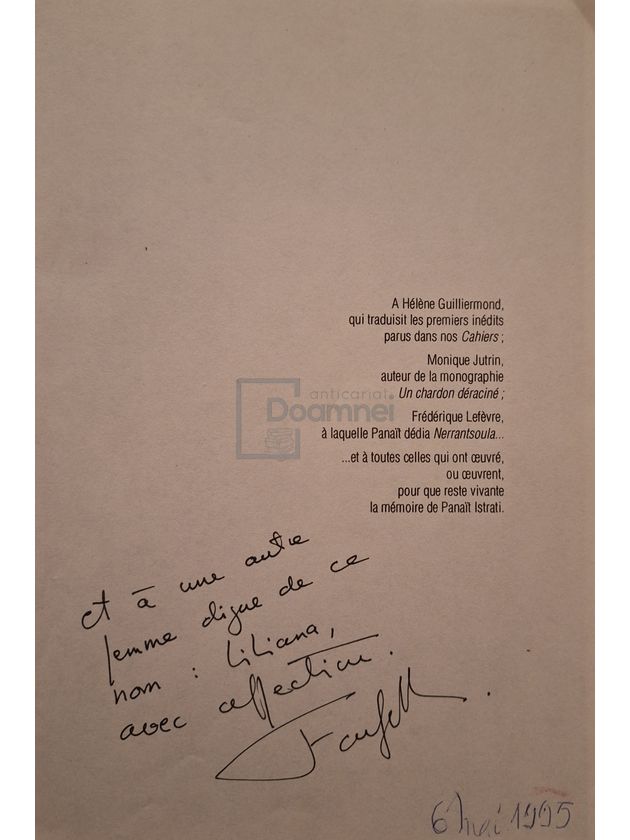 A Hélène Guilliermond,
qui traduisit les premiers inédits
parus dans nos Cahiers ;
Monique Jutrin,
auteur de la monographie
Un chardon déraciné ;
Frédérique Lefèvre,
à laquelle Panaït dédia Nerrantsoula...
...et à toutes celles qui ont œuvré,
ou œuvrent,
pour que reste vivante
la mémoire de Panaït Istrati.
anticariat
Doamnei
et à une autre
femme digne de ce
nom : Liliana,
avec affection.
6 mai 1995